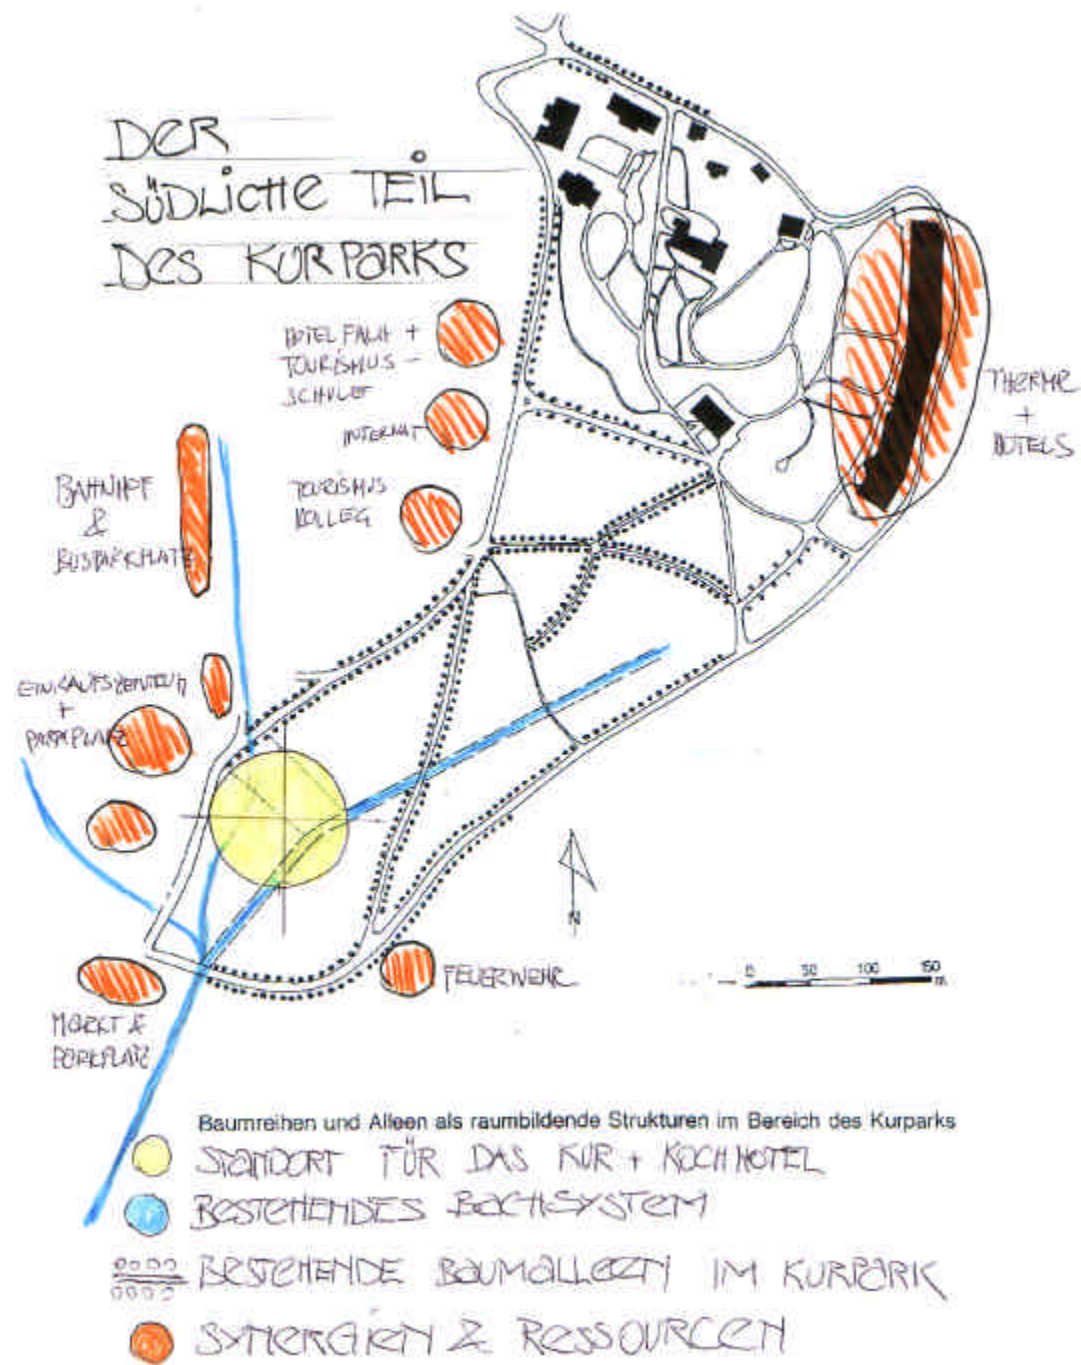 DER
SÜDLICHE TEIL
DES KURPARKS
HOTELFACH +
TOURISMUS -
SCHULE
INTERNAT
TOURISMUS
KOLLEG
THERME
+
HOTELS
BAHNHOF
&
BUSPARKPLATZ
EINKAUFSZENTRUM
+
PARKPLATZ
N
0 50 100 150
m
FEUERWEHR
MARKT &
PARKPLATZ
Baumreihen und Alleen als raumbildende Strukturen im Bereich des Kurparks
STANDORT FÜR DAS KUR + KOCHHOTEL
BESTEHENDES BACHSYSTEM
BESTEHENDE BAUMALLEEN IM KURPARK
SYNERGIEN & RESSOURCEN